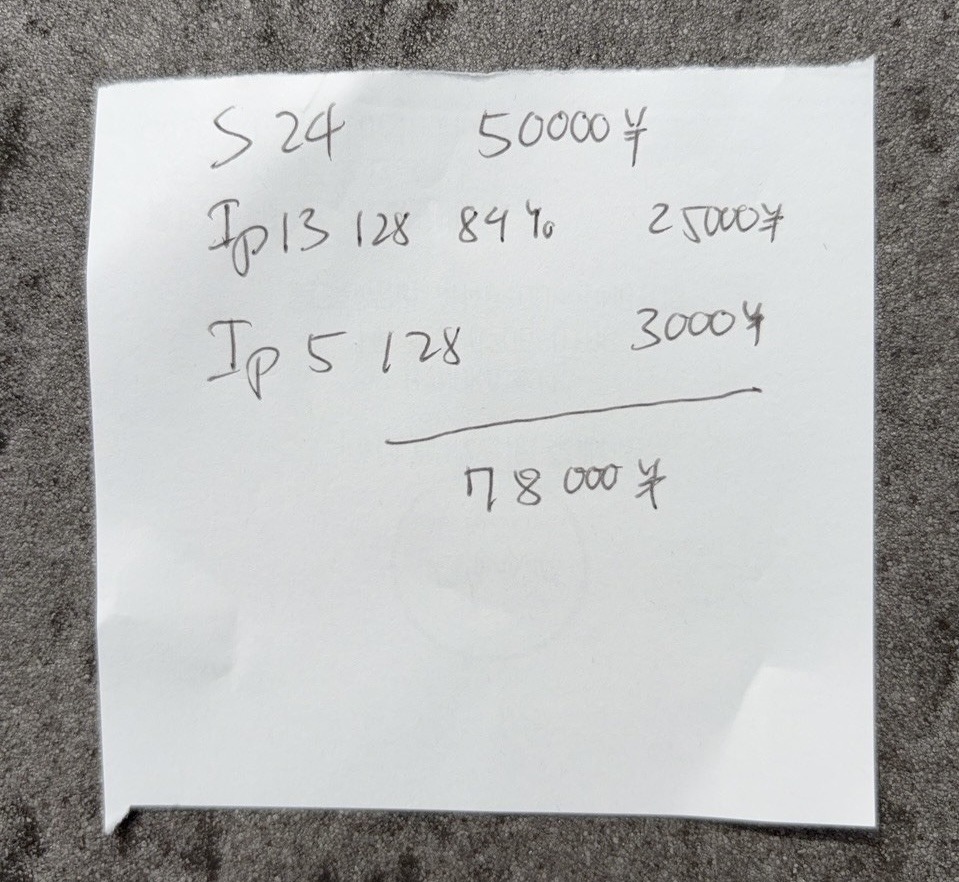 S 24 50000¥
Ip13 128 84% 25000¥
Ip 5 128 3000¥
78000¥